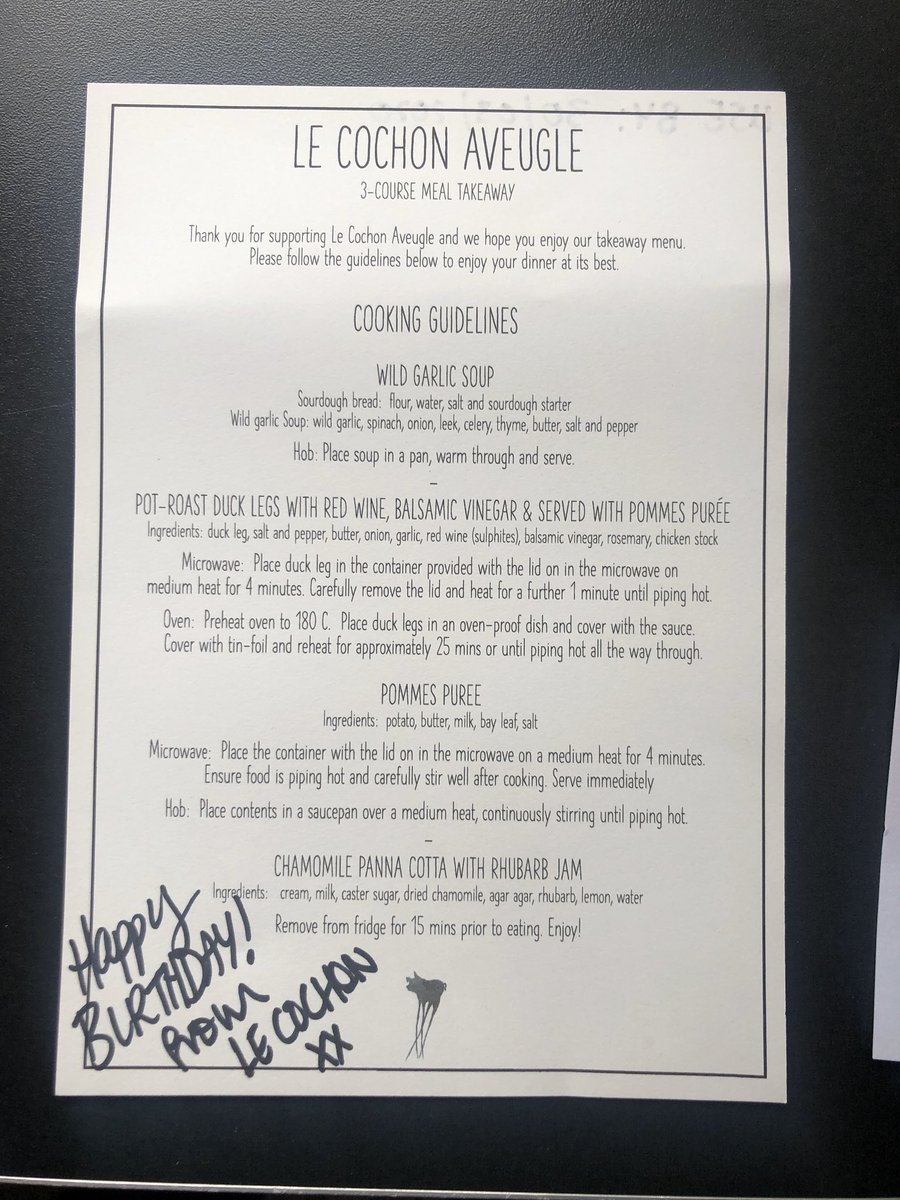 LE COCHON AVEUGLE
3-COURSE MEAL TAKEAWAY
Thank you for supporting Le Cochon Aveugle and we hope you enjoy our takeaway menu.
Please follow the guidelines below to enjoy your dinner at its best.
COOKING GUIDELINES
WILD GARLIC SOUP
Sourdough bread: flour, water, salt and sourdough starter
Wild garlic Soup: wild garlic, spinach, onion, leek, celery, thyme, butter, salt and pepper
Hob: Place soup in a pan, warm through and serve.
–
POT-ROAST DUCK LEGS WITH RED WINE, BALSAMIC VINEGAR & SERVED WITH POMMES PURÉE
Ingredients: duck leg, salt and pepper, butter, onion, garlic, red wine (sulphites), balsamic vinegar, rosemary, chicken stock
Microwave: Place duck leg in the container provided with the lid on in the microwave on
medium heat for 4 minutes. Carefully remove the lid and heat for a further 1 minute until piping hot.
Oven: Preheat oven to 180 C. Place duck legs in an oven-proof dish and cover with the sauce.
Cover with tin-foil and reheat for approximately 25 mins or until piping hot all the way through.
POMMES PUREE
Ingredients: potato, butter, milk, bay leaf, salt
Microwave: Place the container with the lid on in the microwave on a medium heat for 4 minutes.
Ensure food is piping hot and carefully stir well after cooking. Serve immediately
Hob: Place contents in a saucepan over a medium heat, continuously stirring until piping hot.
–
CHAMOMILE PANNA COTTA WITH RHUBARB JAM
Ingredients: cream, milk, caster sugar, dried chamomile, agar agar, rhubarb, lemon, water
Remove from fridge for 15 mins prior to eating. Enjoy!
Happy
BIRTHDAY!
From
LE COCHON
XX